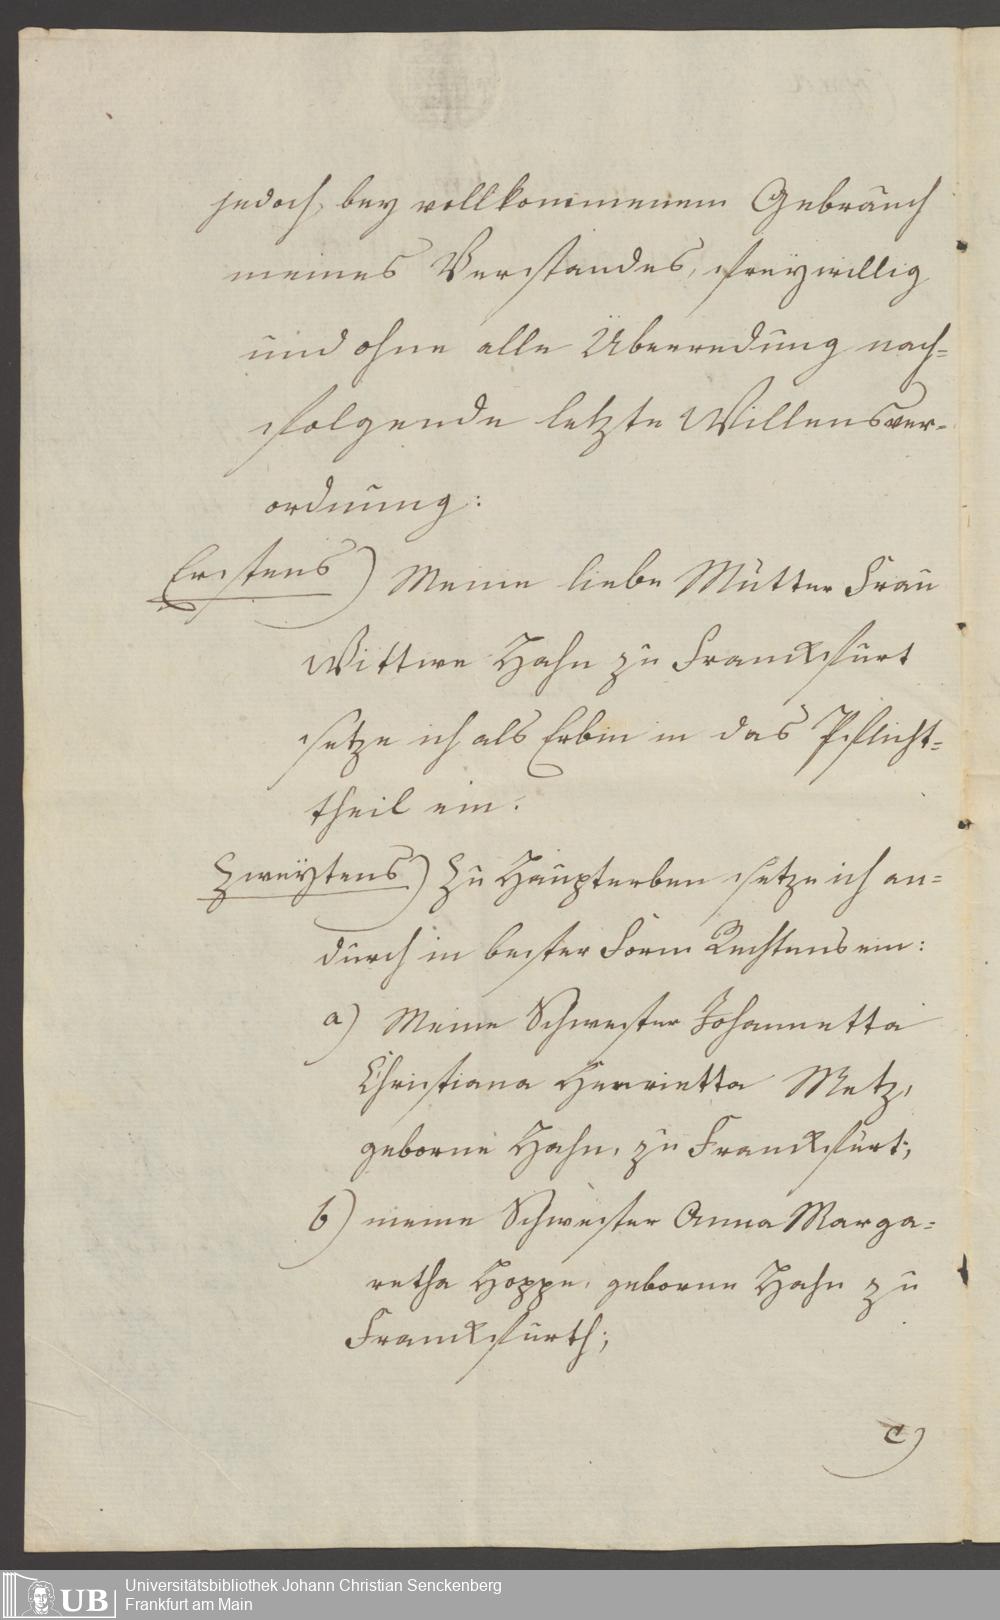 jedoch, bey vollkommenem Gebrauch
meines Verstandes, freywillig
und ohne alle Überredung nach=
folgende letzte Willensver=
ordnung:
Erstens) Meine liebe Mutter Frau
Wittwe Hahn zu Franckfurt
setze ich als Erbin in das Pflicht=
theil ein.
Zweytens) Zu Haupterben setze ich an=
durch in bester Form Rechtens ein:
a) Meine Schwester Johannetta
Christiana Henrietta Metz,
geborne Hahn, zu Franckfurt;
b) meine Schwester Anna Marga=
retha Hoppe, geborne Hahn zu
Franckfurth;
c)
UB
Universitätsbibliothek Johann Christian Senckenberg
Frankfurt am Main